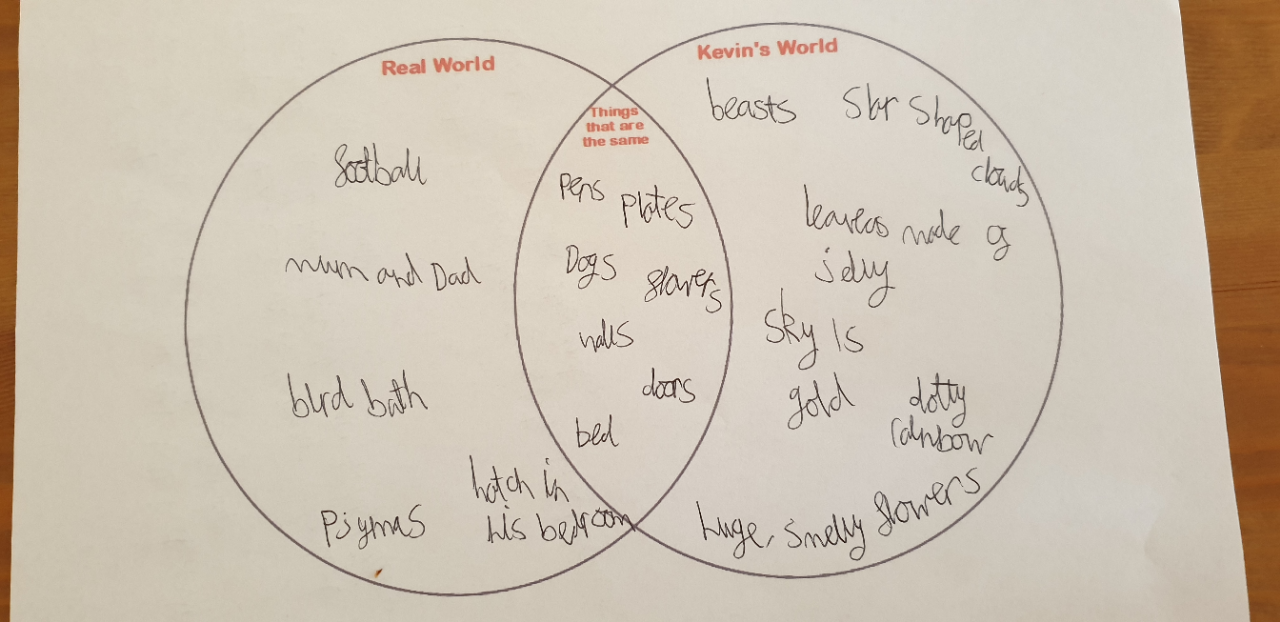 Real World
football
mum and Dad
bird bath
Pjymas
hatch in
his bedroom
Things
that are
the same
Pens
Plates
Dogs
flowers
walls
doors
bed
Kevin's World
beasts
Star Shaped
clouds
leaves made of
jelly
Sky is
gold
dotty
rainbow
huge, smelly flowers